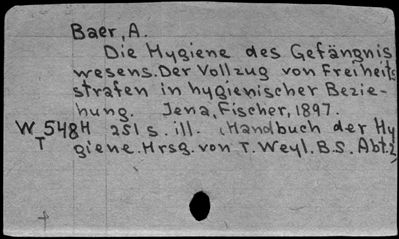 Baer, A.
Die Hygiene des Gefängnis
wesens. Der Vollzug von Freiheits
strafen in hygienischer Bezie-
hung. Jena, Fischer, 1897.
W 548H 251 s. ill. (Handbuch der Hy
T giene. Hrsg. von T. Weyl. B.S. Abt. 2)